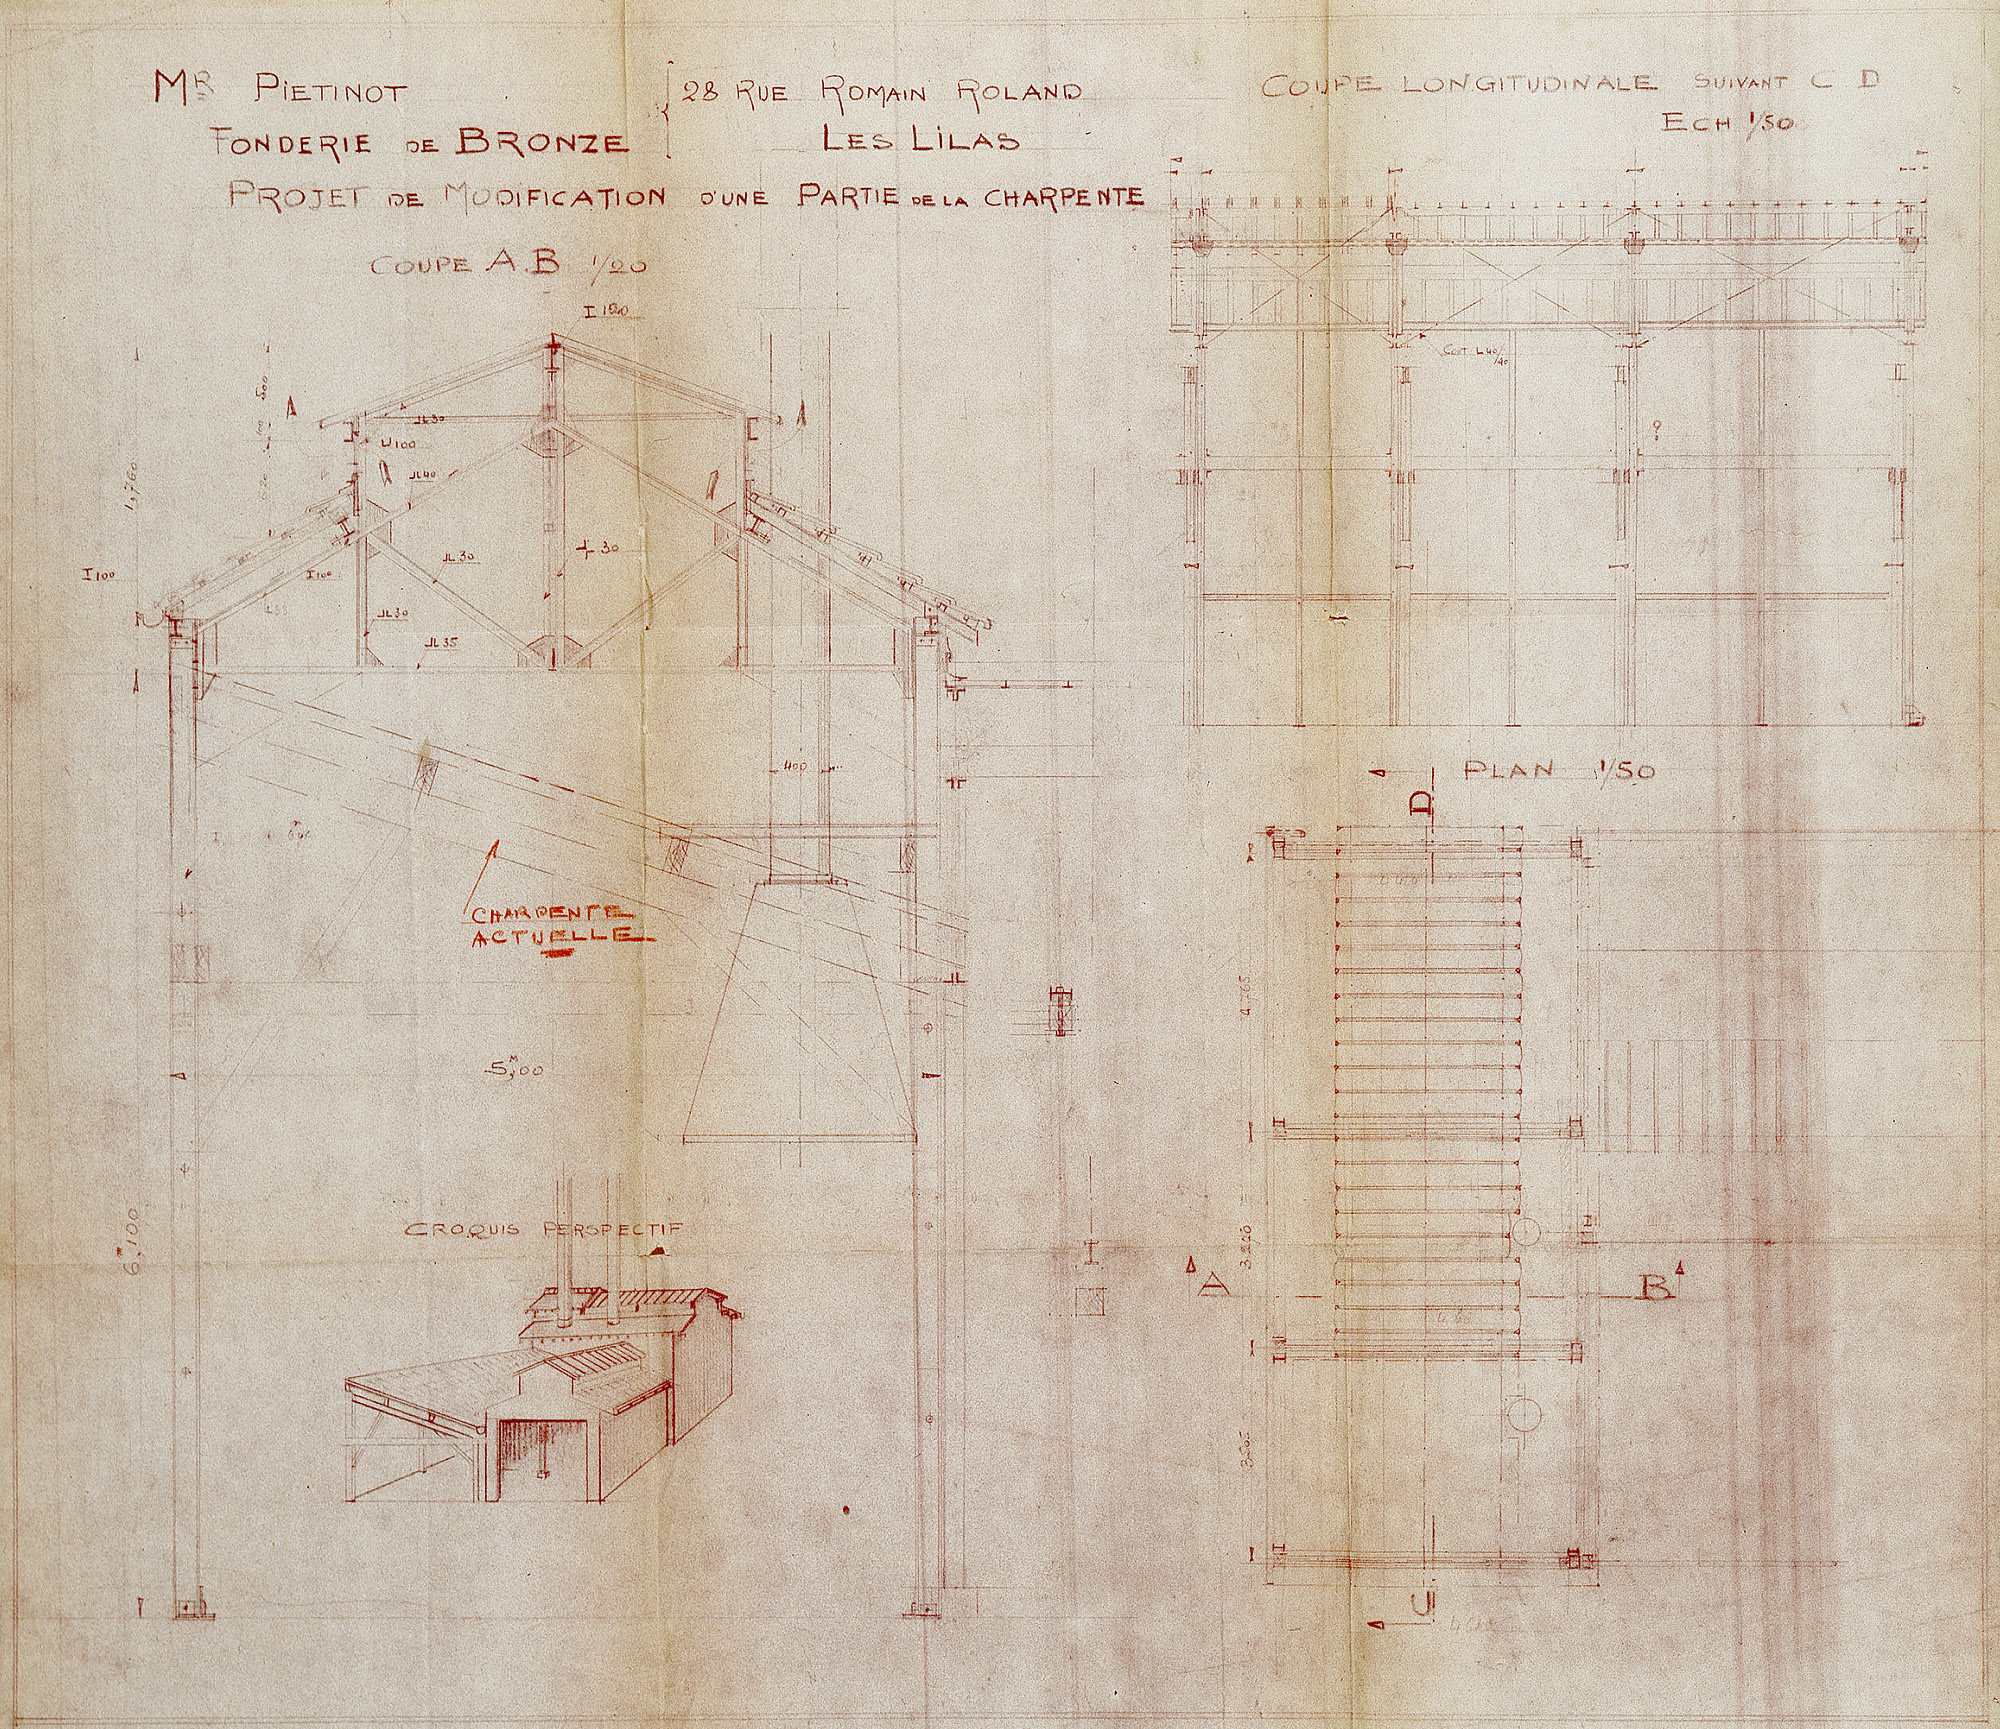 MR PIETINOT
FONDERIE DE BRONZE
28 RUE ROMAIN ROLAND
LES LILAS
PROJET DE MODIFICATION D'UNE PARTIE DE LA CHARPENTE
COUPE A.B 1/20
I 120
JL 30
U 100
JL 40
1,760
I 100
I 100
JL 30
30
JL 30
JL 35
400
CHARPENTE
ACTUELLE
5,00 M
6m,100
CROQUIS PERSPECTIF
COUPE LONGITUDINALE SUIVANT C D
ECH 1/50
L 40/40
?
PLAN 1/50
D
4.765
3.220
A
B
3.505
C